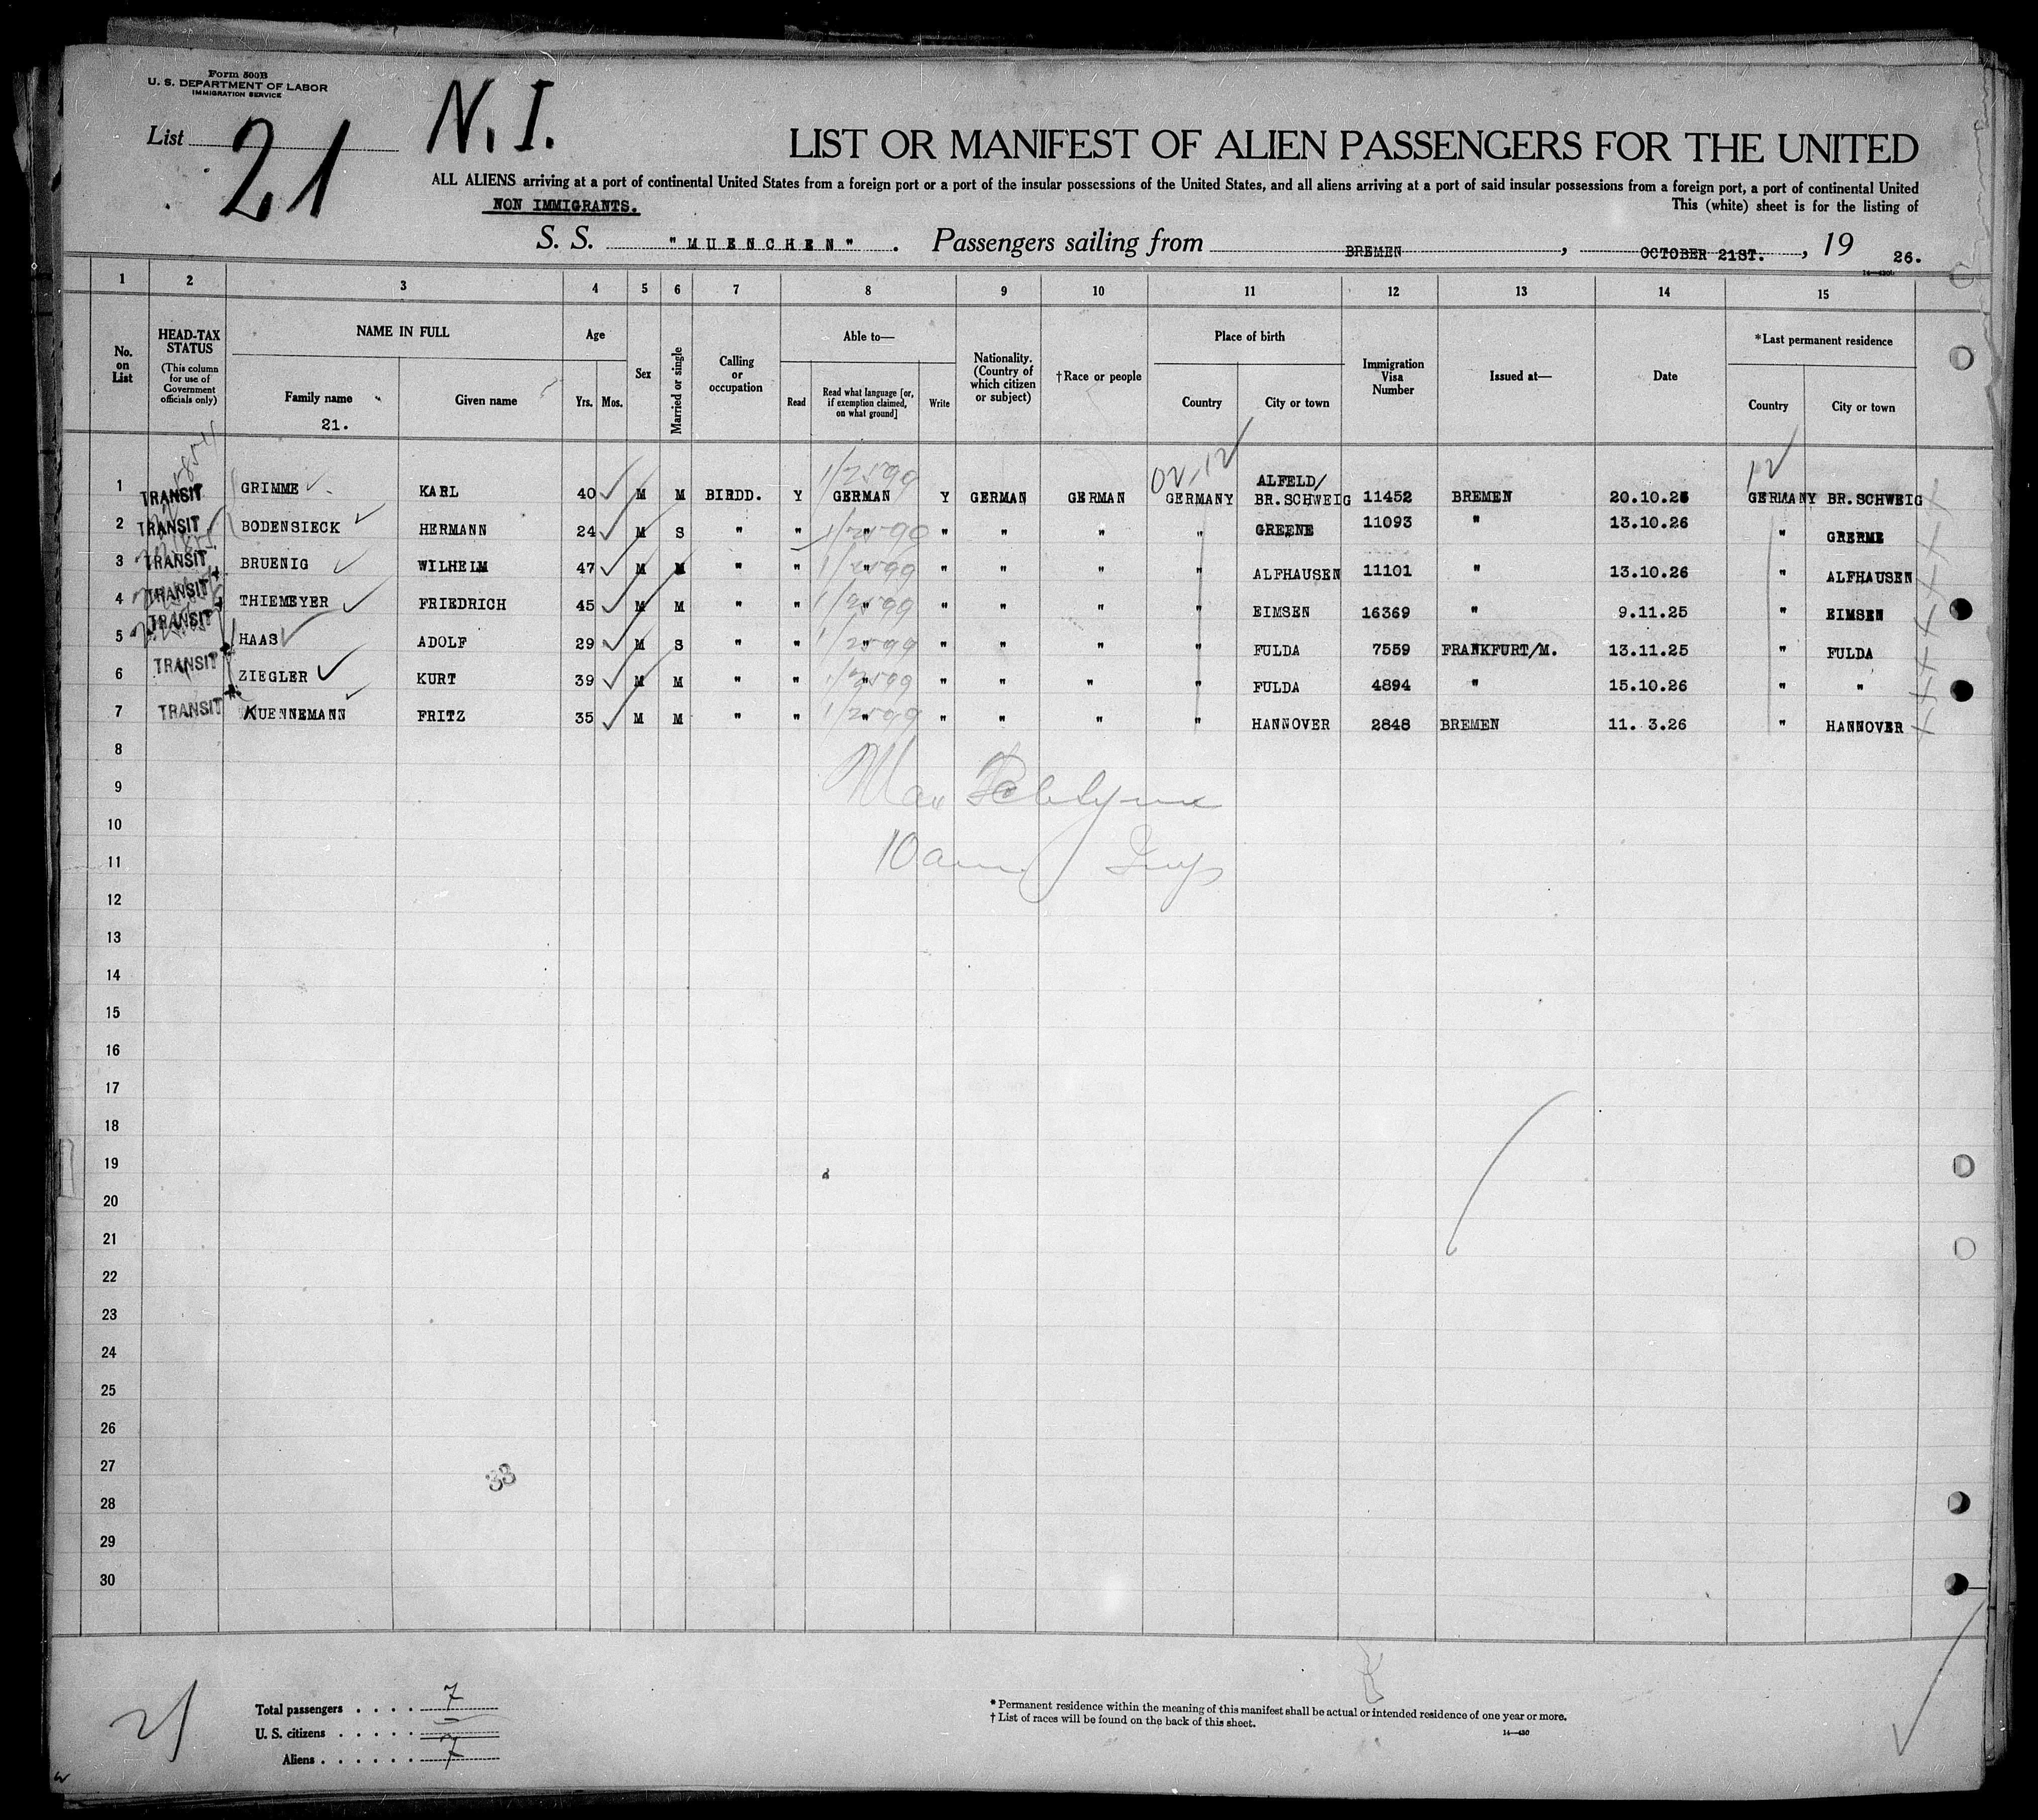 Form 500B
U. S. DEPARTMENT OF LABOR
IMMIGRATION SERVICE
List 21
N. I.
LIST OR MANIFEST OF ALIEN PASSENGERS FOR THE UNITED
ALL ALIENS arriving at a port of continental United States from a foreign port or a port of the insular possessions of the United States, and all aliens arriving at a port of said insular possessions from a foreign port, a port of continental United
NON IMMIGRANTS.
This (white) sheet is for the listing of
S. S. "MUENCHEN". Passengers sailing from BREMEN, OCTOBER 21ST., 19 26.
14—430b
1 2 3 4 5 6 7 8 9 10 11 12 13 14 15
No. on List HEAD-TAX STATUS (This column for use of Government officials only) NAME IN FULL Family name Given name Age Yrs. Mos. Sex Married or single Calling or occupation Able to— Read Read what language [or, if exemption claimed, on what ground] Write Nationality. (Country of which citizen or subject) †Race or people Place of birth Country City or town Immigration Visa Number Issued at— Date *Last permanent residence Country City or town
21.
02.12 12
1 TRANSIT GRIMME KARL 40 M M BIRDD. Y 1/2599 GERMAN Y GERMAN GERMAN GERMANY ALFELD/ BR.SCHWEIG 11452 BREMEN 20.10.26 GERMANY BR.SCHWEIG
2 TRANSIT BODENSIECK HERMANN 24 M S " " " " " " " GREENE 11093 " 13.10.26 " GRERME
3 TRANSIT BRUENIG WILHELM 47 M M " " " " " " " ALFHAUSEN 11101 " 13.10.26 " ALFHAUSEN
4 TRANSIT THIEMEYER FRIEDRICH 45 M M " " " " " " " EIMSEN 16369 " 9.11.25 " EIMSEN
5 TRANSIT HAAS ADOLF 29 M S " " " " " " " FULDA 7559 FRANKFURT/M. 13.11.25 " FULDA
6 TRANSIT ZIEGLER KURT 39 M M " " " " " " " FULDA 4894 " 15.10.26 " "
7 TRANSIT KUENNEMANN FRITZ 35 M M " " " " " " " HANNOVER 2848 BREMEN 11. 3.26 " HANNOVER
8
9 Max
10
11 10 am
12
13
14
15
16
17
18
19
20
21
22
23
24
25
26
27
33
28
29
30
21
Total passengers . . . . 7
U. S. citizens . . . . .
Aliens . . . . . . 7
* Permanent residence within the meaning of this manifest shall be actual or intended residence of one year or more.
† List of races will be found on the back of this sheet.
14—430